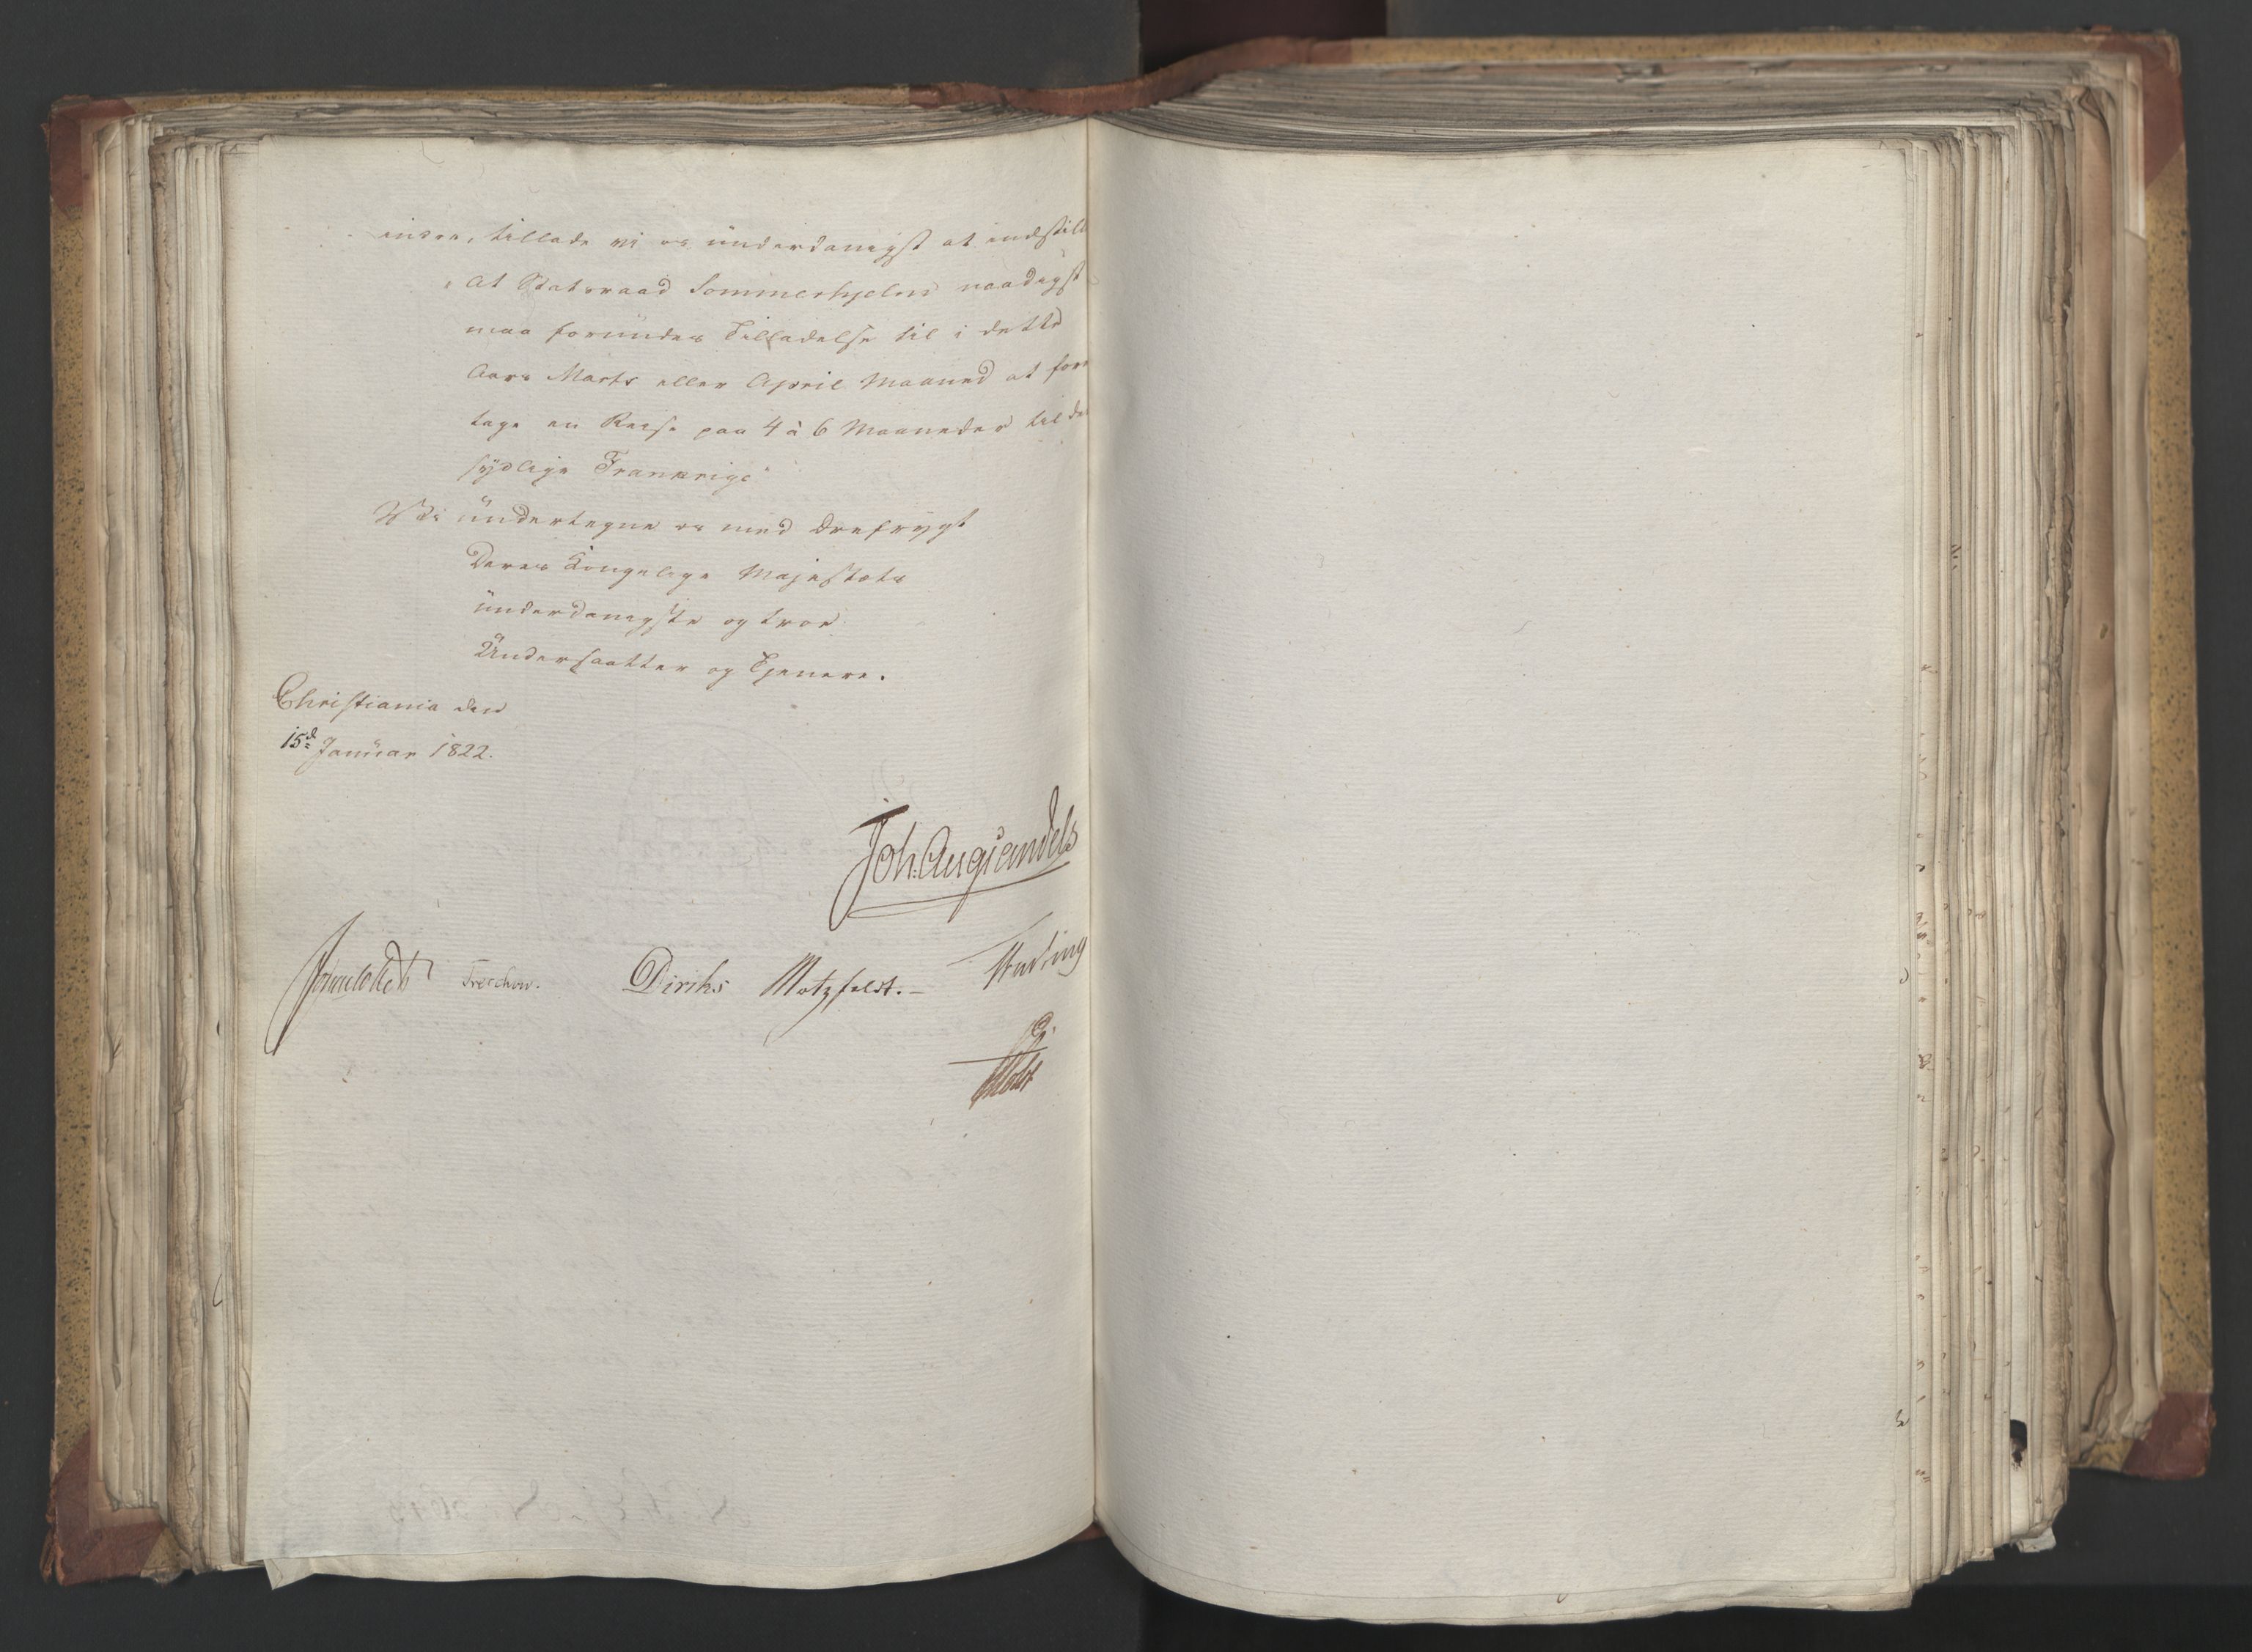 inden, tillade vi os underdanigst at indstill
"At Statsraad Sommerhjelm naadigst
maa forundes Tilladelse til i dette
Aars Marts eller April Maaned at fore
tage en Reise paa 4 à 6 Maaneder til de
sydlige Frankrige"
Vi undertegne os med Ærefrygt
Deres Kongelige Majestæts
underdanigste og troe
Undersaatter og Tjenere.
Christiania den
15d Januar 1822.
Joh: Aug: Sandels
Treschow. Diriks Motzfeldt.